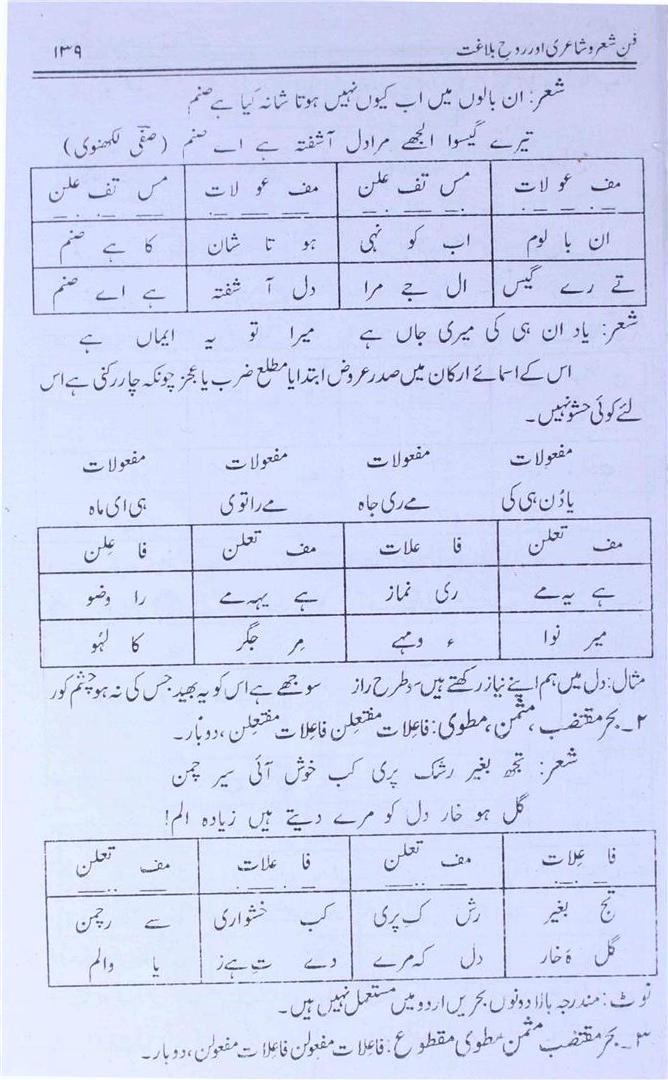 فن شعر و شاعری اور روح بلاغت ۱۳۹
شعر: ان بالوں میں اب کیوں نہیں ہوتا شانہ کیا ہے صنم
تیرے گیسوا الجھے مرادل آشفتہ ہے اے صنم (صفی لکھنوی)
مف عو لات مس تف علن مف عو لات مس تف علن
ان با لوم اب کو نہی ہو تا شان کا ہے صنم
تے رے گیس ال جے مرا دل آ شفتہ ہے اے صنم
شعر: یاد ان ہی کی میری جاں ہے میرا تو یہ ایماں ہے
اس کے اسمائے ارکان میں صدر عروض ابتدا یا مطلع ضرب یا عجز چونکہ چار رکنی ہے اس
لئے کوئی حشو نہیں۔
مفعولات مفعولات مفعولات مفعولات
یادُن ہی کی مے ری جاہ مے راتوی ہی ای ماہ
مف تعلن فا علات مف تعلن فا علن
ہے یہ مے ری نماز ہے یہہ مے را وضو
میر نوا ء ومہے مِر جگر کا لہُو
مثال: دل میں ہم اپنے نیاز رکھتے ہیں سو طرح راز سوجھے ہے اس کو یہ بھید جس کی نہ ہو چشم کور
۲۔ بحر مقتضب، مثمن، مطوی: فاعلات مفتعلن فاعلات مفتعلن، دوبار۔
شعر: تجھ بغیر رشک پری کب خوش آئی سیر چمن
گل ہو خار دل کو مرے دیتے ہیں زیادہ الم!
فا علات مف تعلن فا علات مف تعلن
تج بغیر رش ک پری کب خشواری سے رچمن
گل ہ خار دل کہ مرے دے تِ ہے ز یا والم
نوٹ: مندرجہ بالا دونوں بحریں اردو میں مستعمل نہیں ہیں۔
۳۔ بحر مقتضب مثمن مطوی مقطوع: فاعلات مفعولن فاعلات مفعولن، دوبار۔